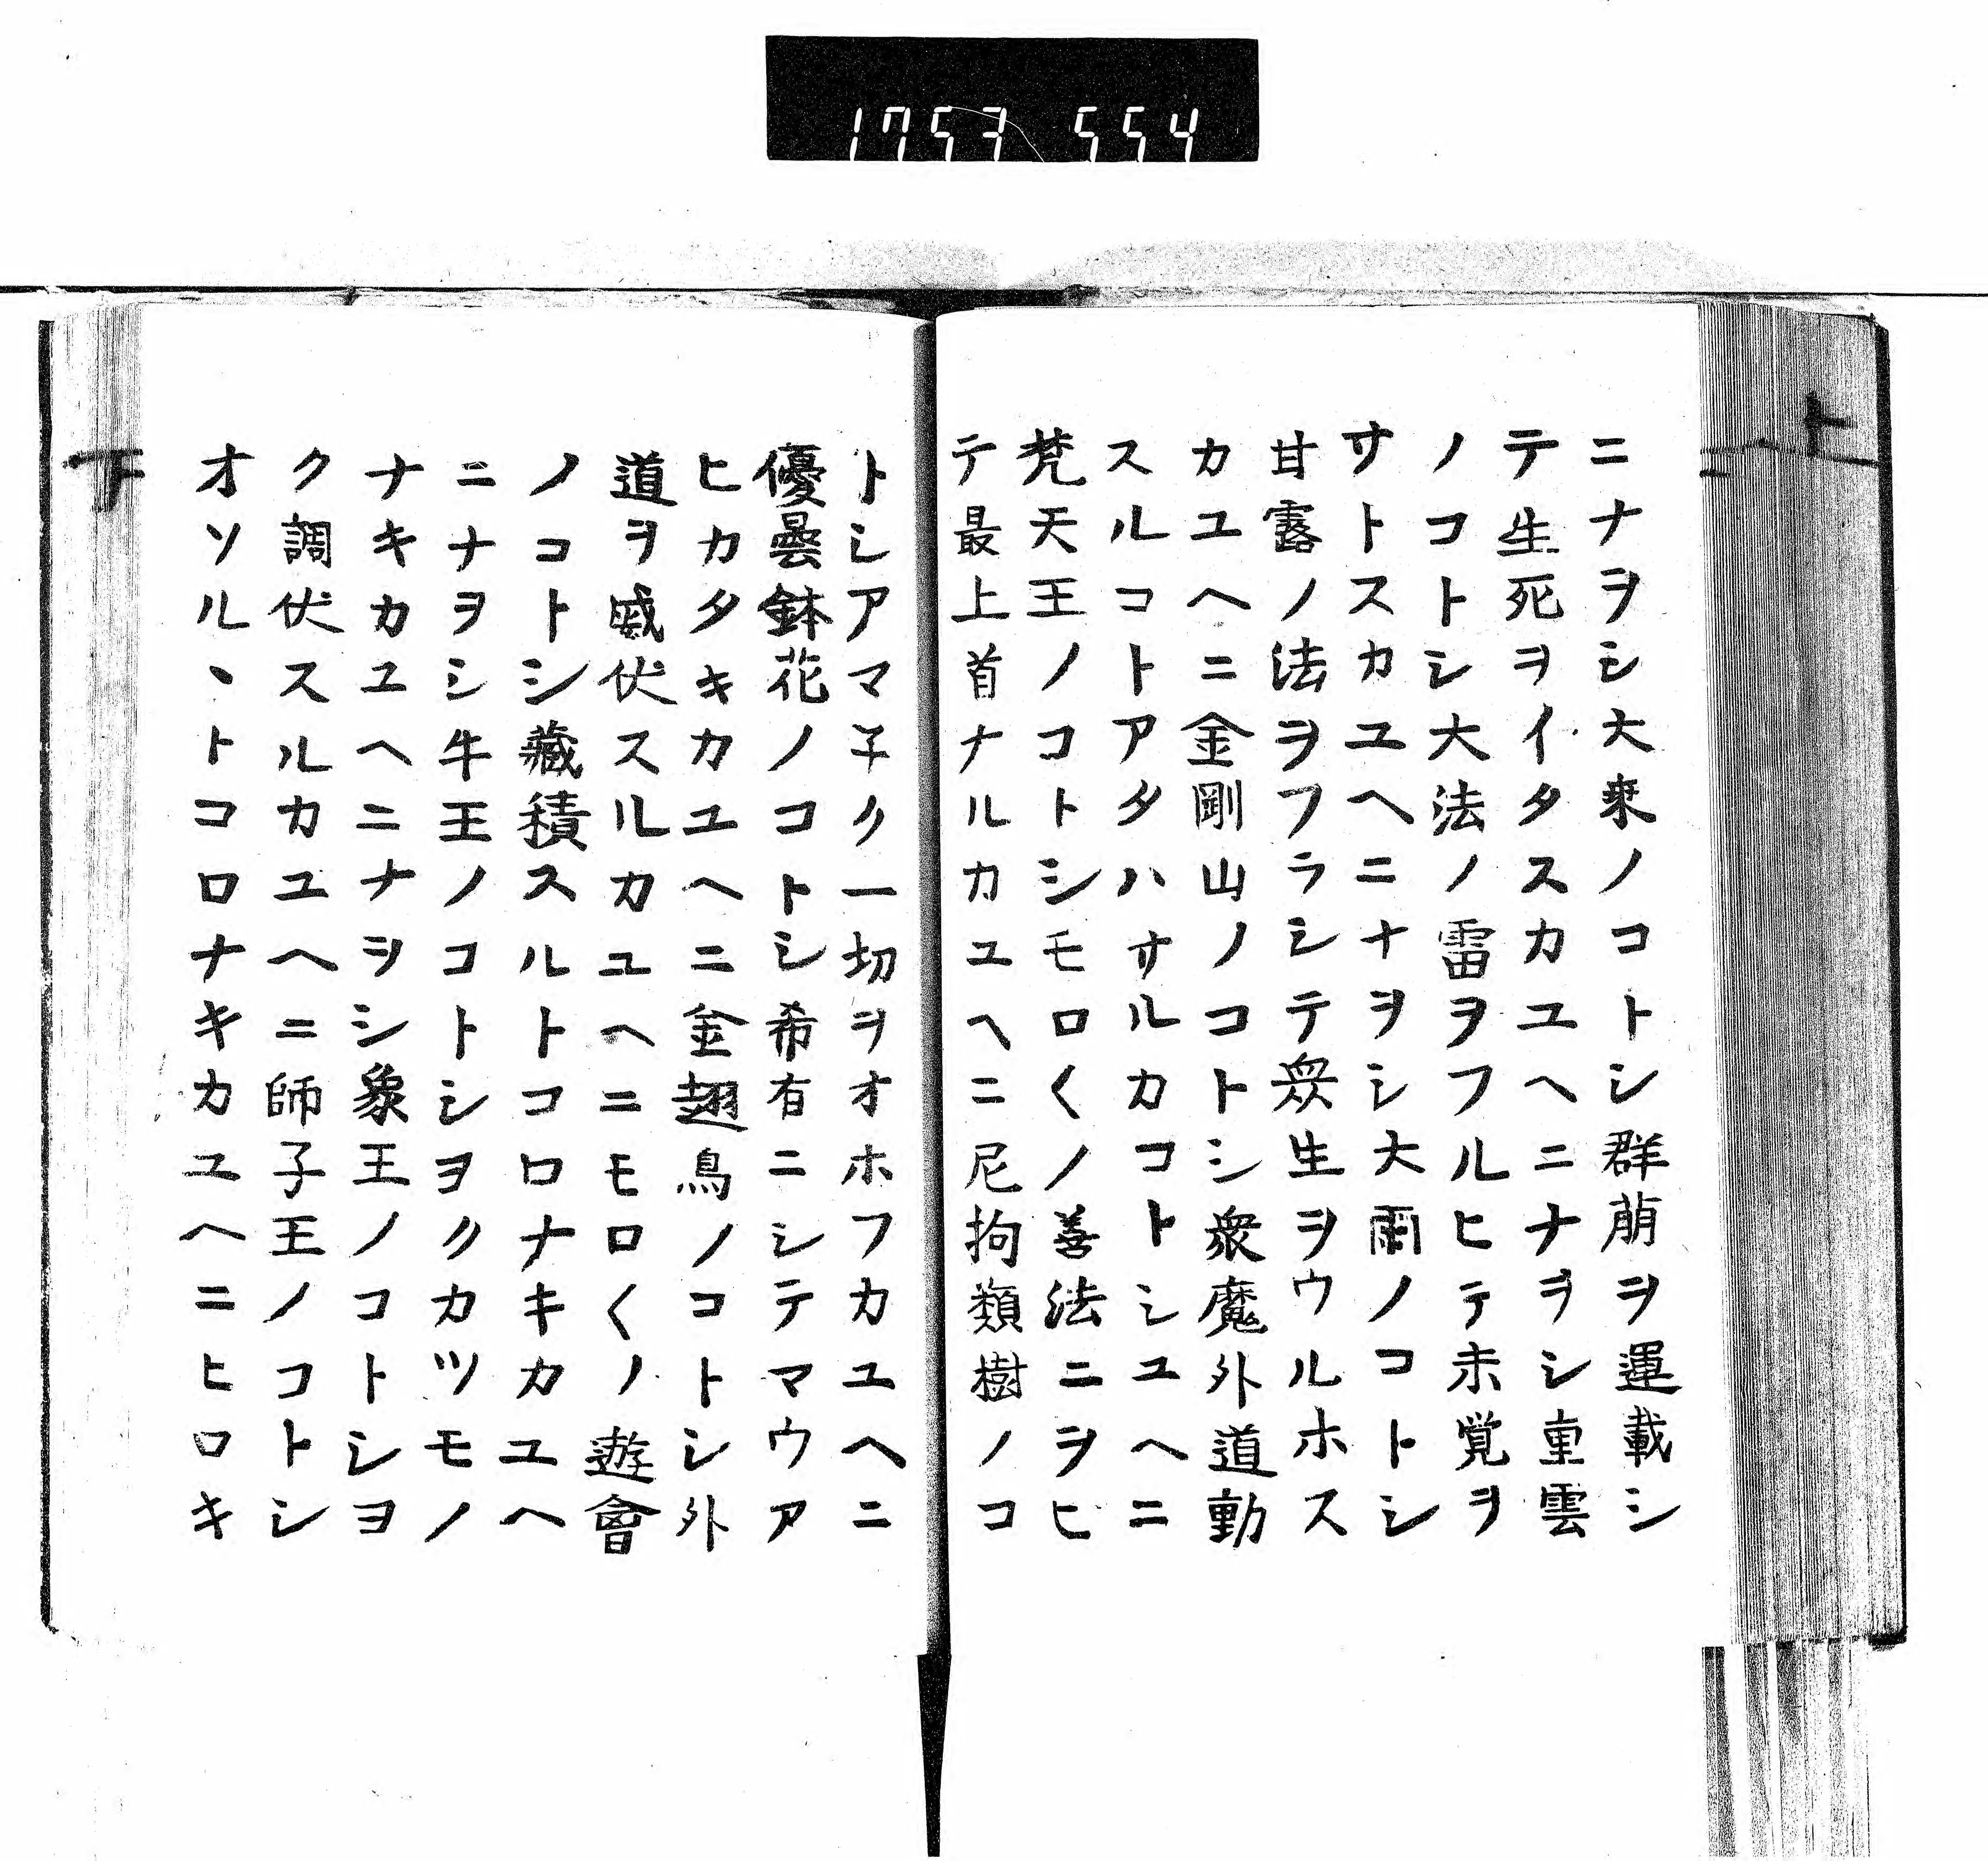 1753 554
ニナヲシ大乗ノコトシ群萠ヲ運載シ
テ生死ヲイタスカユヘニナヲシ重雲
ノコトシ大法ノ雷ヲフルヒテ未覚ヲ
サトスカユヘニナヲシ大雨ノコトシ
甘露ノ法ヲフラシテ衆生ヲウルホス
カユヘニ金剛山ノコトシ衆魔外道動
スルコトアタハサルカコトシユヘニ
梵天王ノコトシモロ〱ノ善法ニヲヒ
テ最上首ナルカユヘニ尼拘類樹ノコ
トシアマ子ク一切ヲオホフカユヘニ
優曇鉢花ノコトシ希有ニシテマウア
ヒカタキカユヘニ金翅鳥ノコトシ外
道ヲ威伏スルカユヘニモロ〱ノ遊會
ノコトシ藏積スルトコロナキカユヘ
ニナヲシ牛王ノコトシヨクカツモノ
ナキカユヘニナヲシ象王ノコトシヨ
ク調伏スルカユヘニ師子王ノコトシ
オソルヽトコロナキカユヘニヒロキ